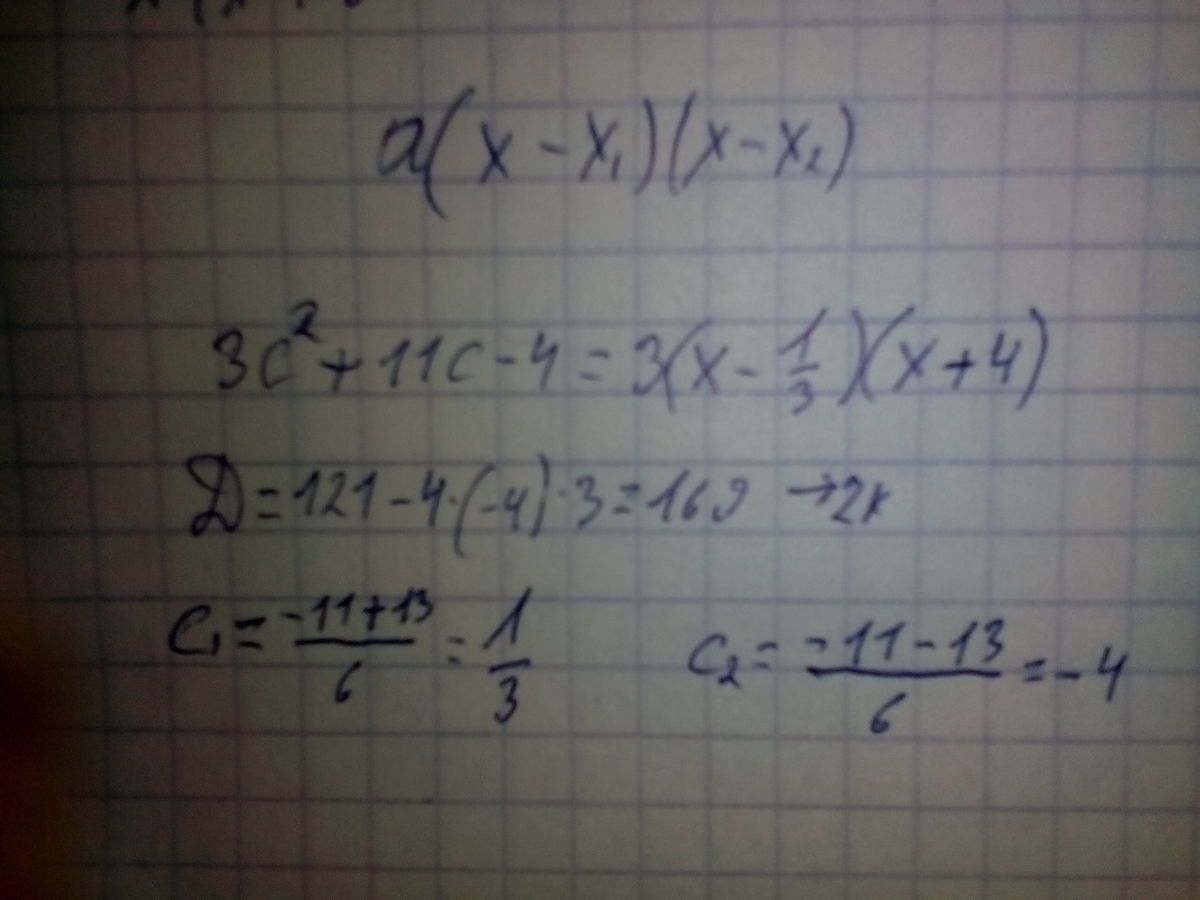 a(x - x₁)(x - x₂)
3c² + 11c - 4 = 3(x - 1/3)(x + 4)
D = 121 - 4·(-4)·3 = 169 → 2к
c₁ = (-11+13)/6 = 1/3
c₂ = (-11-13)/6 = -4